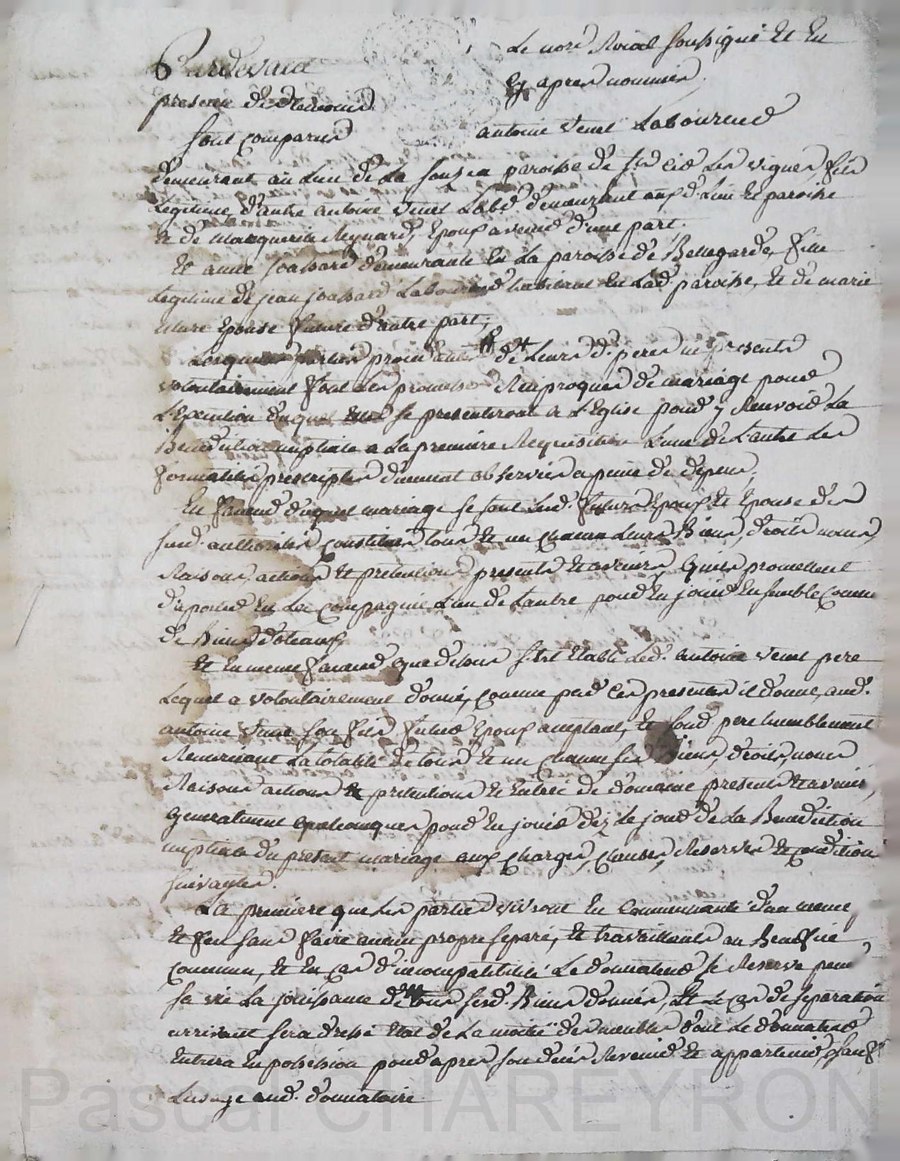 Pardevant Le nore Roial soussigné Et En
presence des temoins cy apres nommés.
sont comparus antoine Venet Laboureur
demeurant au Lieu de La paroisse de st cir Les vignes fils
Legitime d'autre antoine Venet Labr demeurant auxd. Lieu Et paroisse
Et de Marguerite Reynard, Epoux avenir d'une part.
Et anne Joassard demeurante En La paroisse de Bellegarde, fille
Legitime de jean Joassard Laboureur habitant En Lad. paroisse, Et de marie
Epouse future d'autre part,
Lesquelles parties de Leurs d. peres icy presents
volontairement font les promesses Reciproques de mariage pour
L'Execution duquel Elles se presenteront a L'Eglise pour y Recevoir La
Benediction nuptiale a La premiere Requisition L'une de L'autre Les
formalités prescriptes duement observées a peine de depens,
En faveur duquel mariage se sont Lesd. futurs Epoux Et Epouse des
susd. authorités constitués tous Et un chacun Leurs Biens, droits noms,
Raisons, actions Et pretentions presents Et avenir, qu'ils promettent
d'aporter En La compagnie L'un de L'autre pour En jouir Ensemble comme
de Biens dotaux
Et En meme faveur que dessus s'est Etabli Led. antoine Venet pere
Lequel a volontairement donné, comme par Ces presentes il donne, aud.
antoine Venet son fils futur Epoux acceptant, Et sond pere humblement
Remerciant La totalité de tous Et un chacun ses Biens, droits, noms
Raisons actions & pretentions Et Entrée de domaine presents Et avenir,
Generalement quelconques pour En jouir dez Le jour de La Benediction
nuptiale du present mariage aux charges, clauses, Reserves Et condition
suivantes.
La premiere que Les parties vivront En Communauté d'un meme
Et feu sans faire aucun propre separé, Et travaillants au Benefice
commun, Et En cas d'incompatibilité Le donnateur se Reserve pendt
sa vie La jouissance de tous sesd. Biens donnés, Et Le cas de separation
arrivant sera dressé Etat de La moitié des meubles dont Le donnateur
Entrera En possession pour apres son deces Revenir Et appartenir, sauf
L'usage aud. donnataire
Pascal CHAREYRON